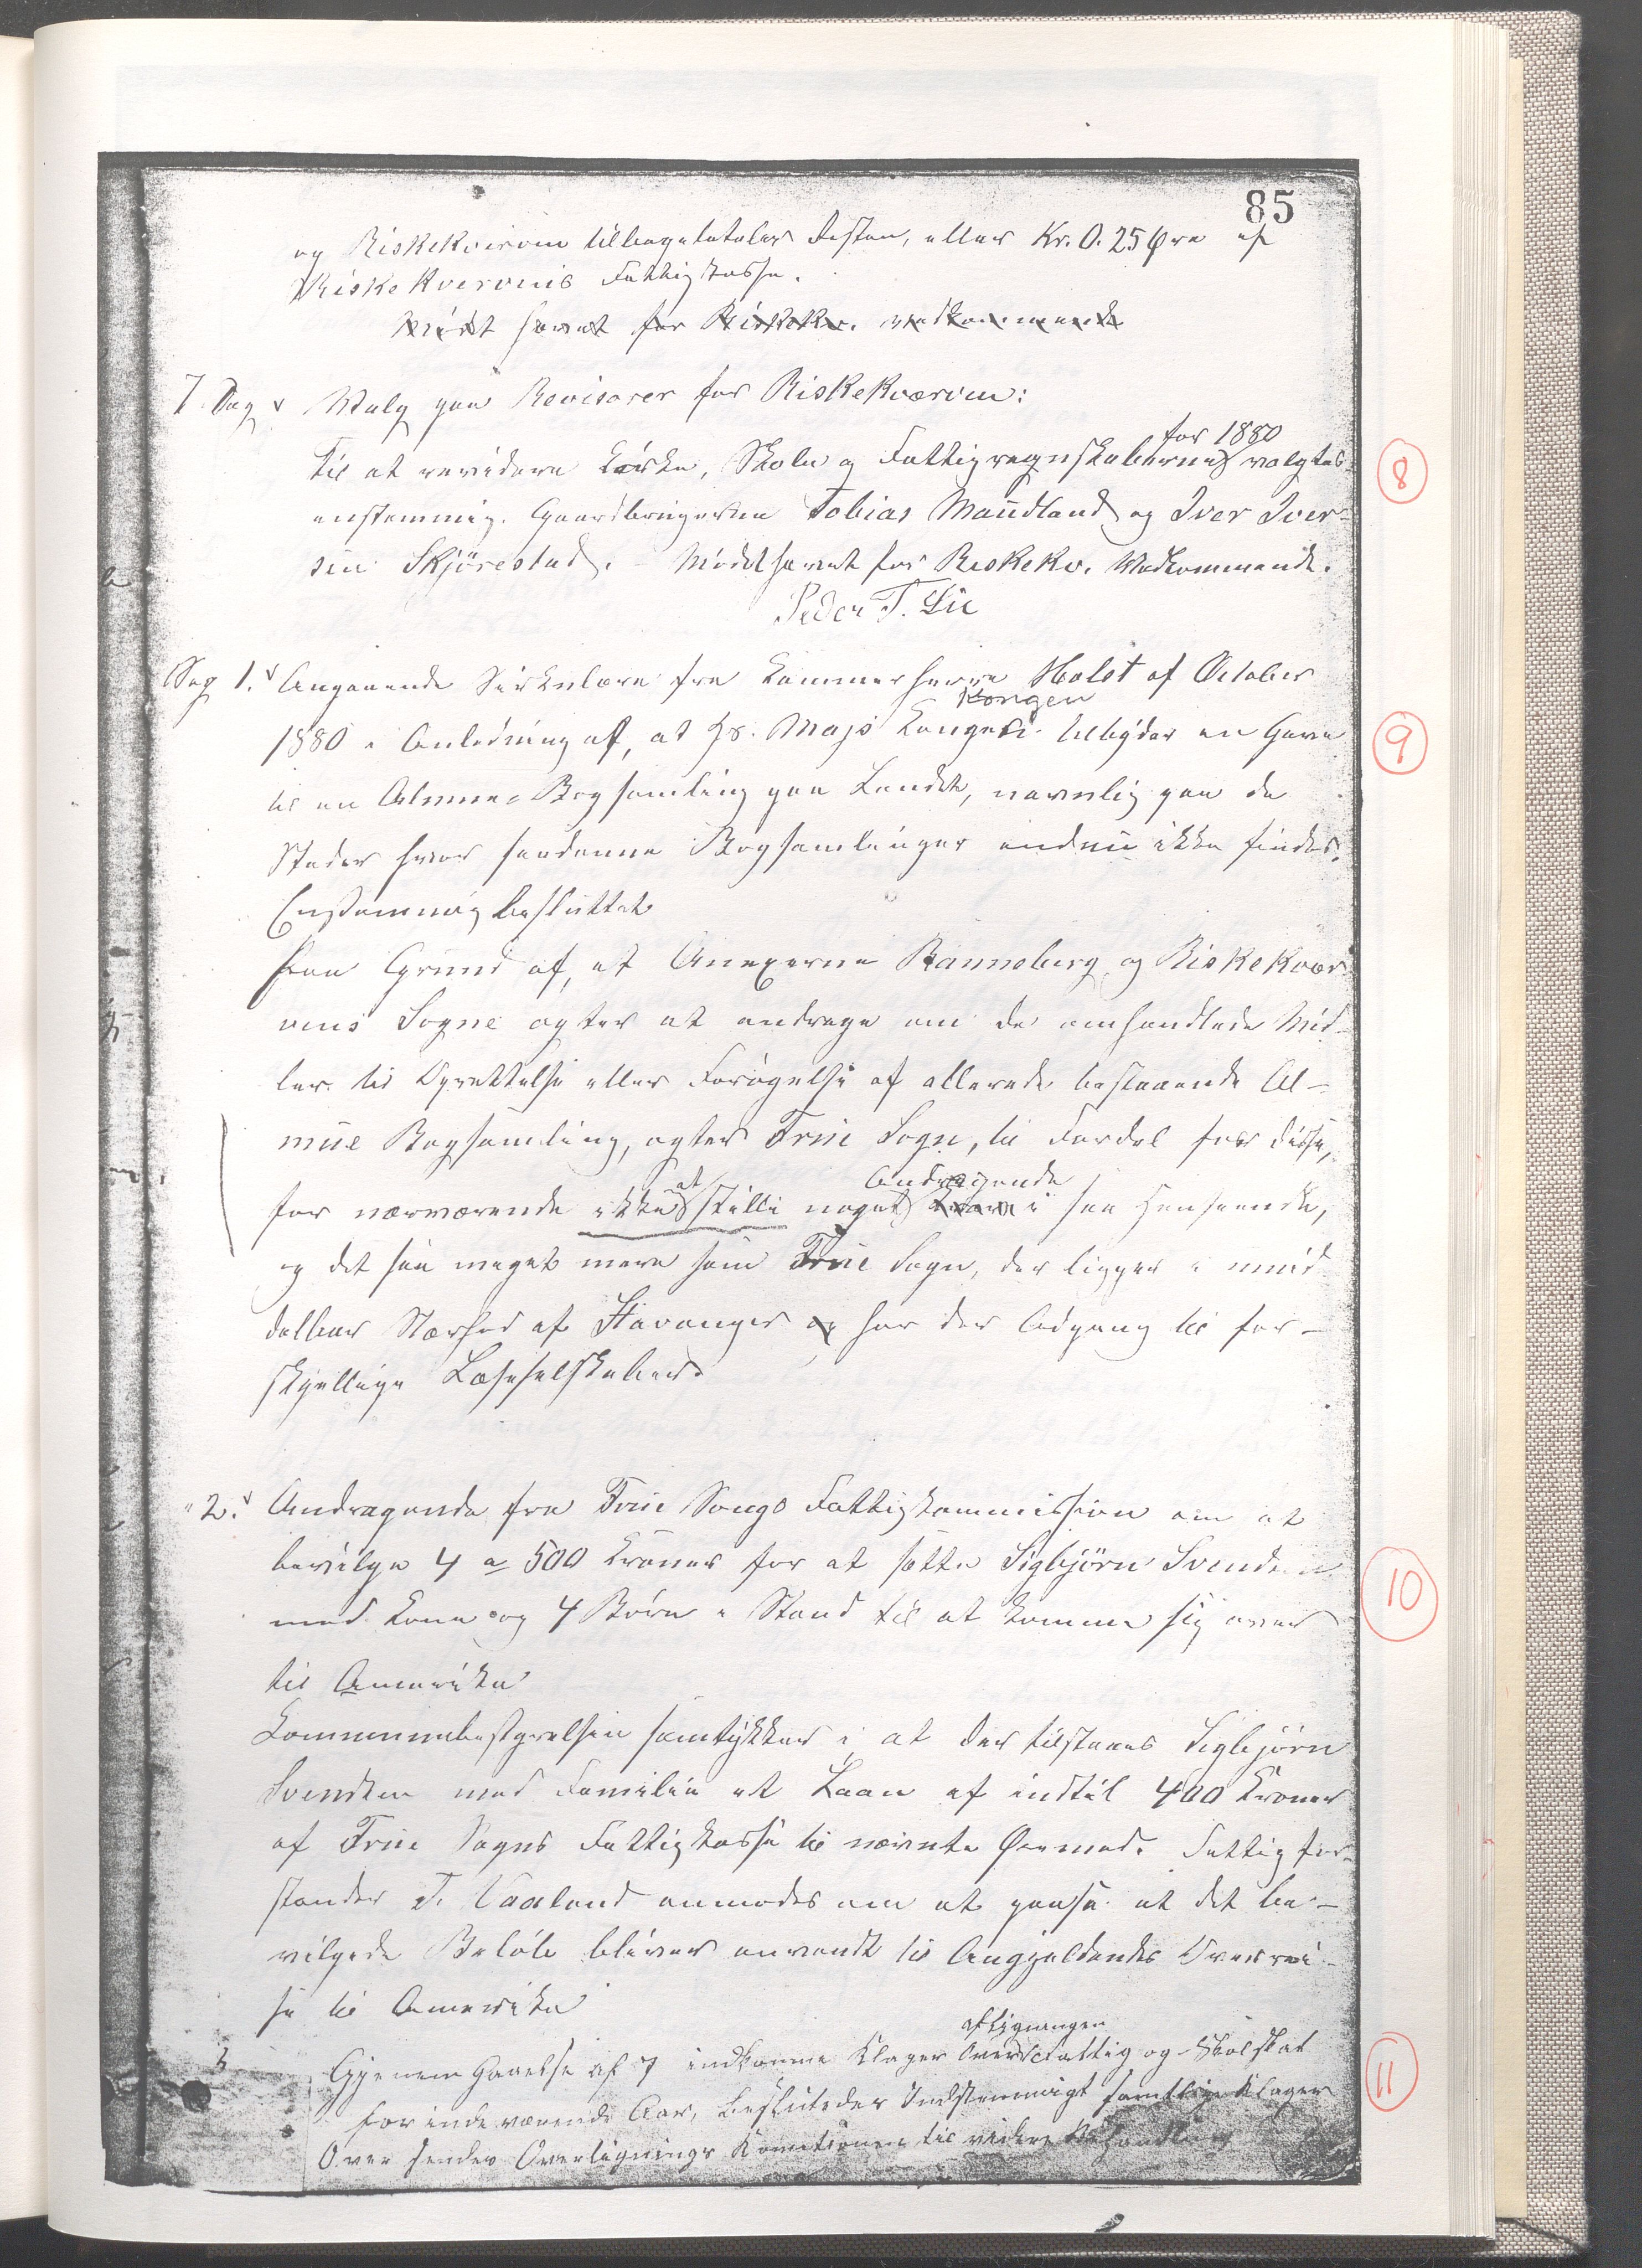 85
og Riskekværvim tilbagebetales Resten, eller Kr. 0.25 Øre af
Riskekvervuis Fattigkasse.
Mödet hævet for Riskekv. vedkommende
7. Sag Valg paa Revisorer for Riskekværvim:
for 1880
til at revidere Kirke, Skole og Fattigregnskaberne valgtes
enstemmig. Gaardbrugerne Tobias Maudland og Iver Iver-
sen Skjörestad. - Mödet hævet for Riskekv. Vedkommende.
Peder T. Lie
8
Sag 1. Angaaende Sirkulære fra Kammerherre Holst af October
Kongen
1880 i Anledning af, at Hs. Majs Kongen tilbyder en Gave
til en Almue-Bogsamling paa Landet, navnlig paa de
Steder hvor saadanne Bogsamlinger endnu ikke findes.
Enstemmig besluttet
Paa Grund af, at Anexerne Ranneberg og Riskekvær-
vuis Sogne agter at andrage om de omhandlede Mid-
ler til Oprettelse eller Forøgelse af allerede bestaaende Al-
mue Bogsamling, agter Frue Sogn, til Fordel for disse,
at Andragende
for nærværende ikke stille noget Krav i saa Henseende,
og det saa meget mere som Frue Sogn, der ligger i umid-
delbar Nærhed af Stavanger og har der Adgang til for-
skjellige Læseselskaber.
9
2. Andragende fra Frue Songs Fattigkommission om at
bevilge 4 a 500 Kroner for at sætte Sigbjörn Svendsen
med Kone og 4 Börn i Stand til at komme sig over
til Amerika
Kommunebestyrelsen samtykker i at der tilstaaes Sigbjörn
Svendsen med Familie et Laan af indtil 400 Kroner
af Frue Sogns Fattigkasse til nævnte Øiemed. Fattigfor-
stander T. Vaaland anmodes om at paase at det be-
vilgede Beløb bliver anvendt til Angjældendes Overrei-
se til Amerika
10
afligningen
3 Gjenem Gaaelse af 7 indkomne Klager Over Fattig og Skolskat
for indeværende Aar, besluttedes Indstemmigt samtlige Klager
Over sendes Overlignings Komitionen til videre Behandling
11